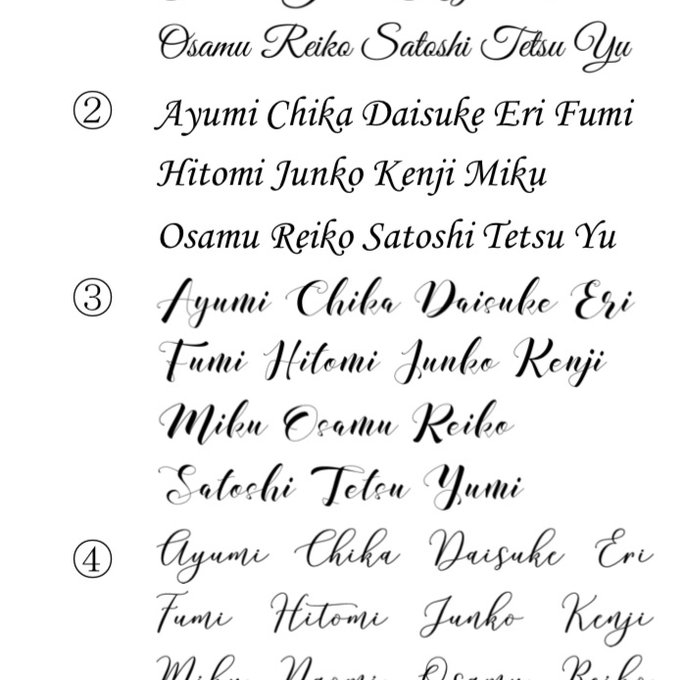 Osamu Reiko Satoshi Tetsu Yu
② Ayumi Chika Daisuke Eri Fumi
Hitomi Junko Kenji Miku
Osamu Reiko Satoshi Tetsu Yu
③ Ayumi Chika Daisuke Eri
Fumi Hitomi Junko Kenji
Miku Osamu Reiko
Satoshi Tetsu Yumi
④ Ayumi Chika Daisuke Eri
Fumi Hitomi Junko Kenji
Miku Naomi Osamu Reiko